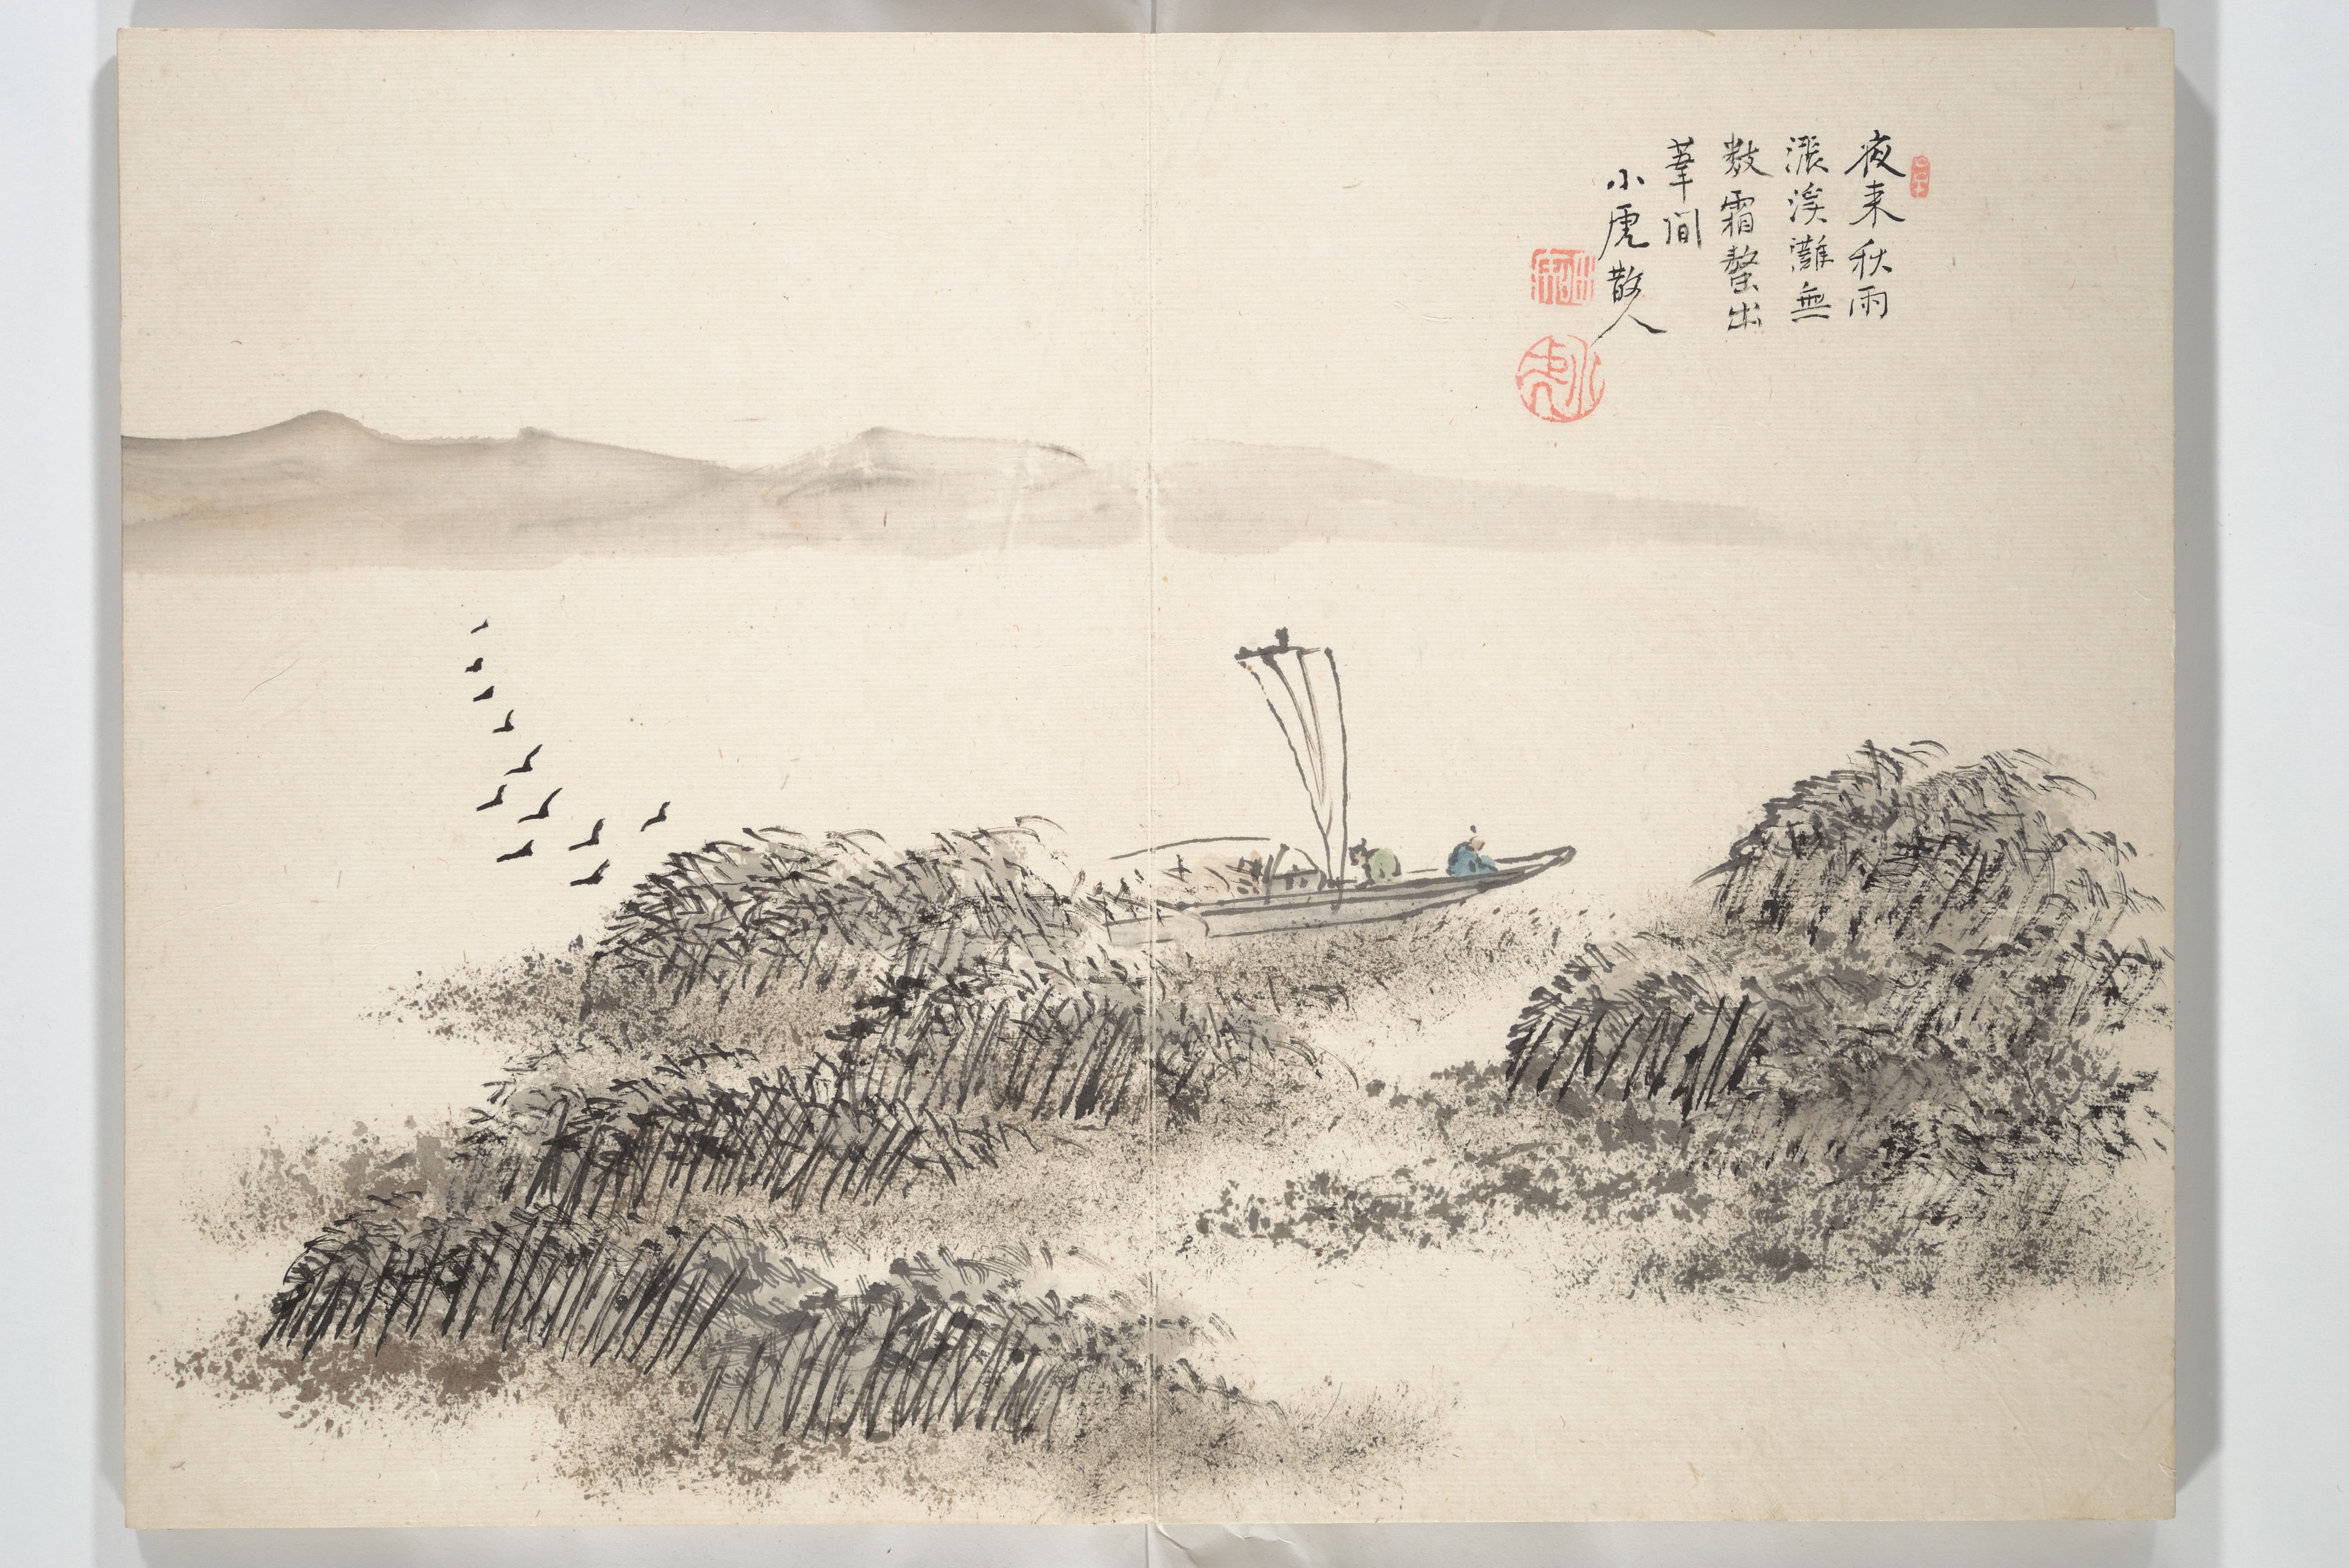 夜来秋雨
漲渓灘無
数霜螯出
葦間
小虎散人
小虎